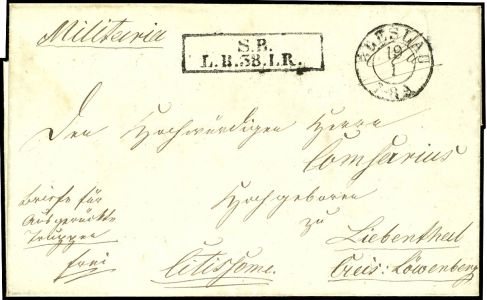 Militaria
S.B.
L.B.38.I.R.
BRESLAU
19
1
Den Hochwürdigen Herrn
Comsarius
Hochgeboren
zu
Briefe für
Ausgerückte
Truppen
frei
Citissime.
Liebenthal
Creis: Löwenberg